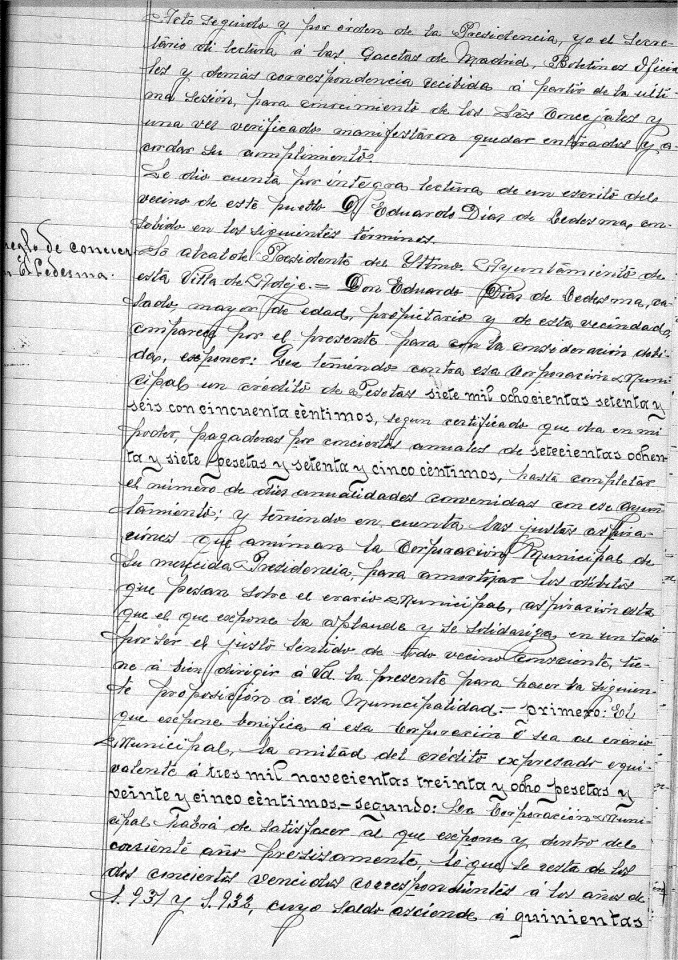 Acto seguido y por órden de la Presidencia, yo el Secre-
tario di lectura á las Gacetas de Madrid, Boletines Oficia
les y demas correspondencia recibida á partir de la ulti-
ma sesión, para conocimiento de los Srs Concejales y
una vez verificado manifestaron quedar enterados y a-
cordar su cumplimento.
Se dio cuenta por integra lectura de un escrito del
vecino de este pueblo D. Eduardo Dias de Ledesma, con-
cebido en los siguientes términos.
reglo de concier
Ledesma.
Sr. Alcalde Presidente del Ultmo. Ayuntamiento de
esta Villa de Adeje.= Don Eduardo Dias de Ledesma, ca-
sado, mayor de edad, propietario y de esta vecindad,
comparece por el presente para con la consideración debi-
da, exponer: Que teniendo contra esa Corporación Muni-
cipal un credito de Pesetas siete mil ochocientas setenta y
séis con cincuenta cèntimos, segun certificado que obra en mi
poder, pagaderas por conciertos anuales de setecientas ochen-
ta y siete pesetas y setenta y cinco cèntimos, hasta completar
el número de diez anualidades convenidas con ese Ayun-
tamiento; y teniendo en cuenta las justas aspira-
ciones que animan la Corporación Municipal de
su merecida Presidencia, para amortizar los débitos
que pesan sobre el erario Municipal, aspiración esta
que el que expone la aplaude y se solidariza en un todo
por ser el justo sentido de todo vecino consciente, tie-
ne á bien dirigir á Vd la presente para hacer la siguien-
te proposición á esa Municipalidad.- primero: El
que expone bonifica á esa Corporación ó sea al erario
Municipal, la mitad del crédito expresado equi-
valente á tres mil novecientas treinta y ocho pesetas y
veinte y cinco cèntimos.- segundo: La Corporación Muni-
cipal habrá de satisfacer al que expone y dentro del
corriente año presisamente, lo que se resta de los
dos conciertos vencidos correspondientes a los años de
1.931 y 1.932, cuyo saldo asciende á quinientas